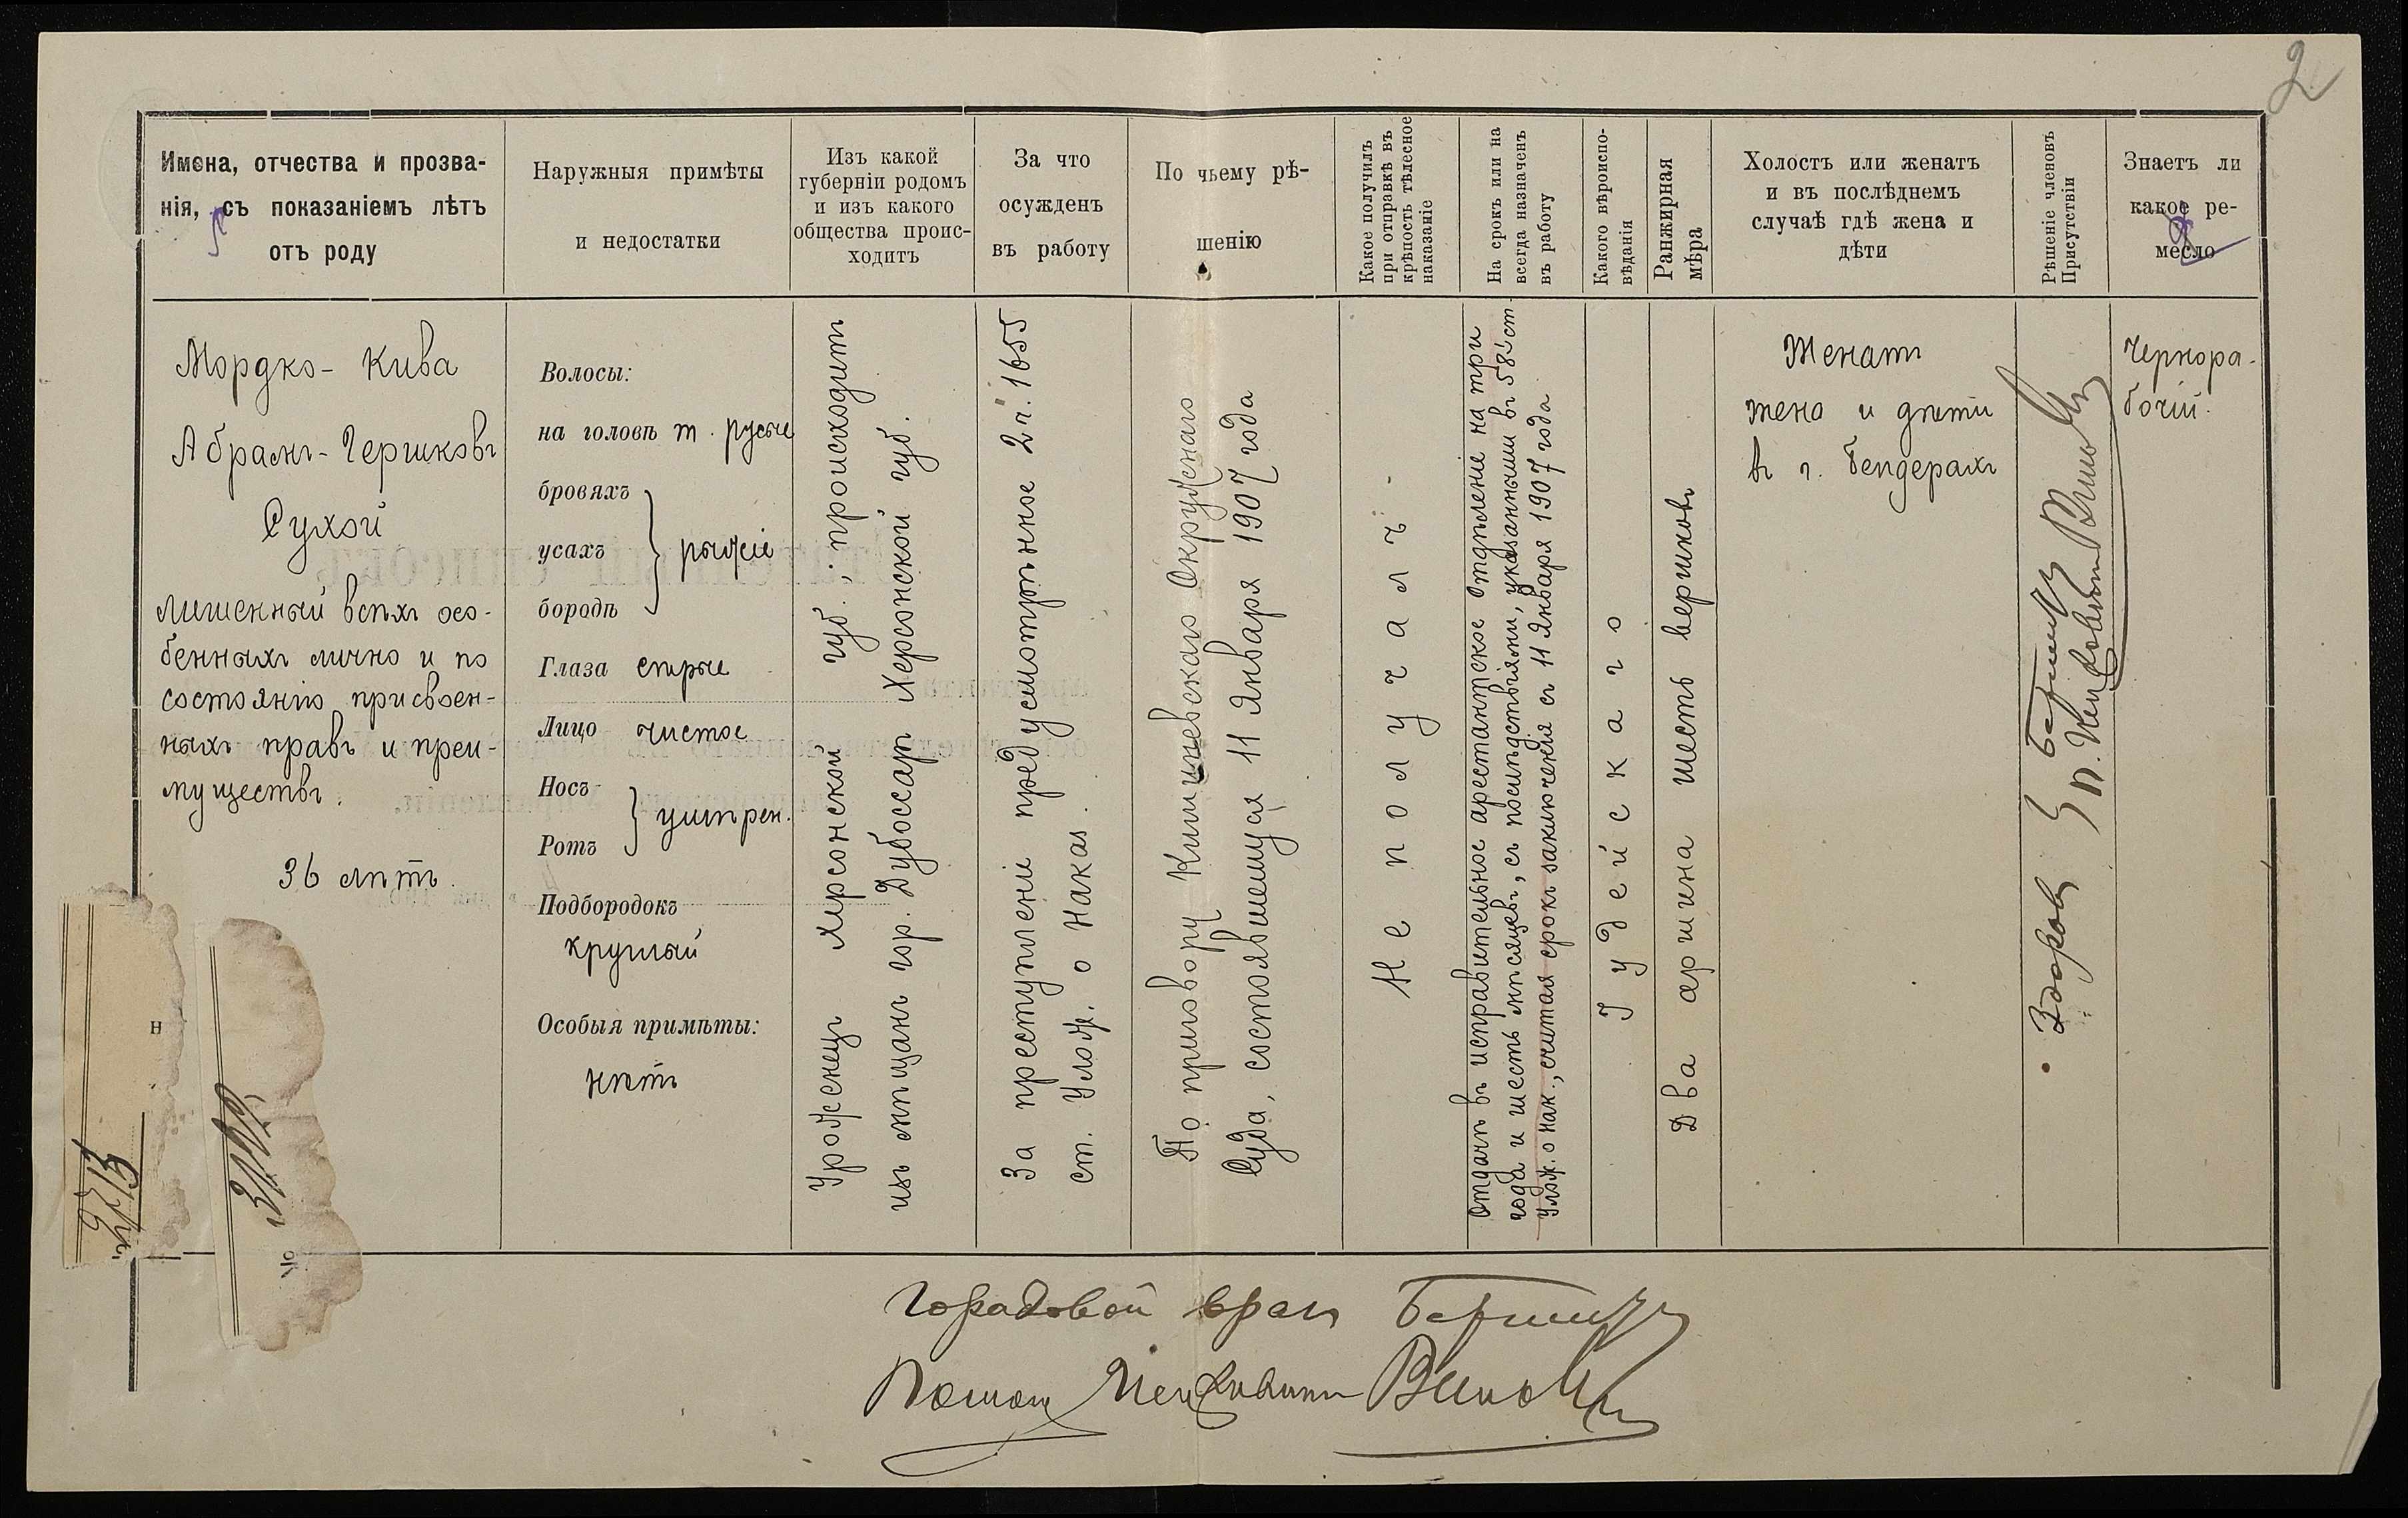 2
Имена, отчества и прозва-
нія, съ показаніемъ лѣтъ
отъ роду
Наружныя примѣты
и недостатки
Изъ какой
губерніи родомъ
и изъ какого
общества проис-
ходитъ
За что
осужденъ
въ работу
По чьему рѣ-
шенію
Какое получилъ
при отправкѣ въ
крѣпость тѣлесное
наказаніе
На срокъ или на
всегда назначенъ
въ работу
Какого вѣроиспо-
вѣданія
Ранжирная
мѣра
Холостъ или женатъ
и въ послѣднемъ
случаѣ гдѣ жена и
дѣти
Рѣшеніе членовъ
Присутствіи
Знаетъ ли
какое ре-
месло
Мордко-Кива
Абрамъ-Гершковъ
Сухой
лишенный всѣхъ осо-
бенныхъ лично и по
состоянію присвоен-
ныхъ правъ и преи-
муществъ.
36 лѣтъ.
Волосы:
на головѣ т. русые
бровяхъ
усахъ рыжіе
бородѣ
Глаза сѣрые
Лицо чистое
Носъ
умѣрен.
Ротъ
Подбородокъ
круглый
Особыя примѣты:
нѣтъ
Уроженецъ Херсонской губ., происходитъ
изъ мѣщанъ гор. Дубоссаръ Херсонской губ.
За преступленіе предусмотрѣнное 2 ч. 1655
ст. Улож. о Наказ.
По приговору Кишиневскаго Окружнаго
Суда, состоявшемуся 11 Января 1907 года
Не получалъ.
Отдачѣ въ исправительное арестантское отдѣленіе на три
года и шесть мѣсяцевъ, съ послѣдствіями, указанными въ 58¹ ст.
Улож. о Нак., считая срокъ заключенія съ 11 Января 1907 года
Іудейскаго
Два аршина шесть вершковъ
Женатъ
жена и дѣти
въ г. Бендерахъ
Здоровъ
Чернора-
бочій.
н
№
Городовой врач